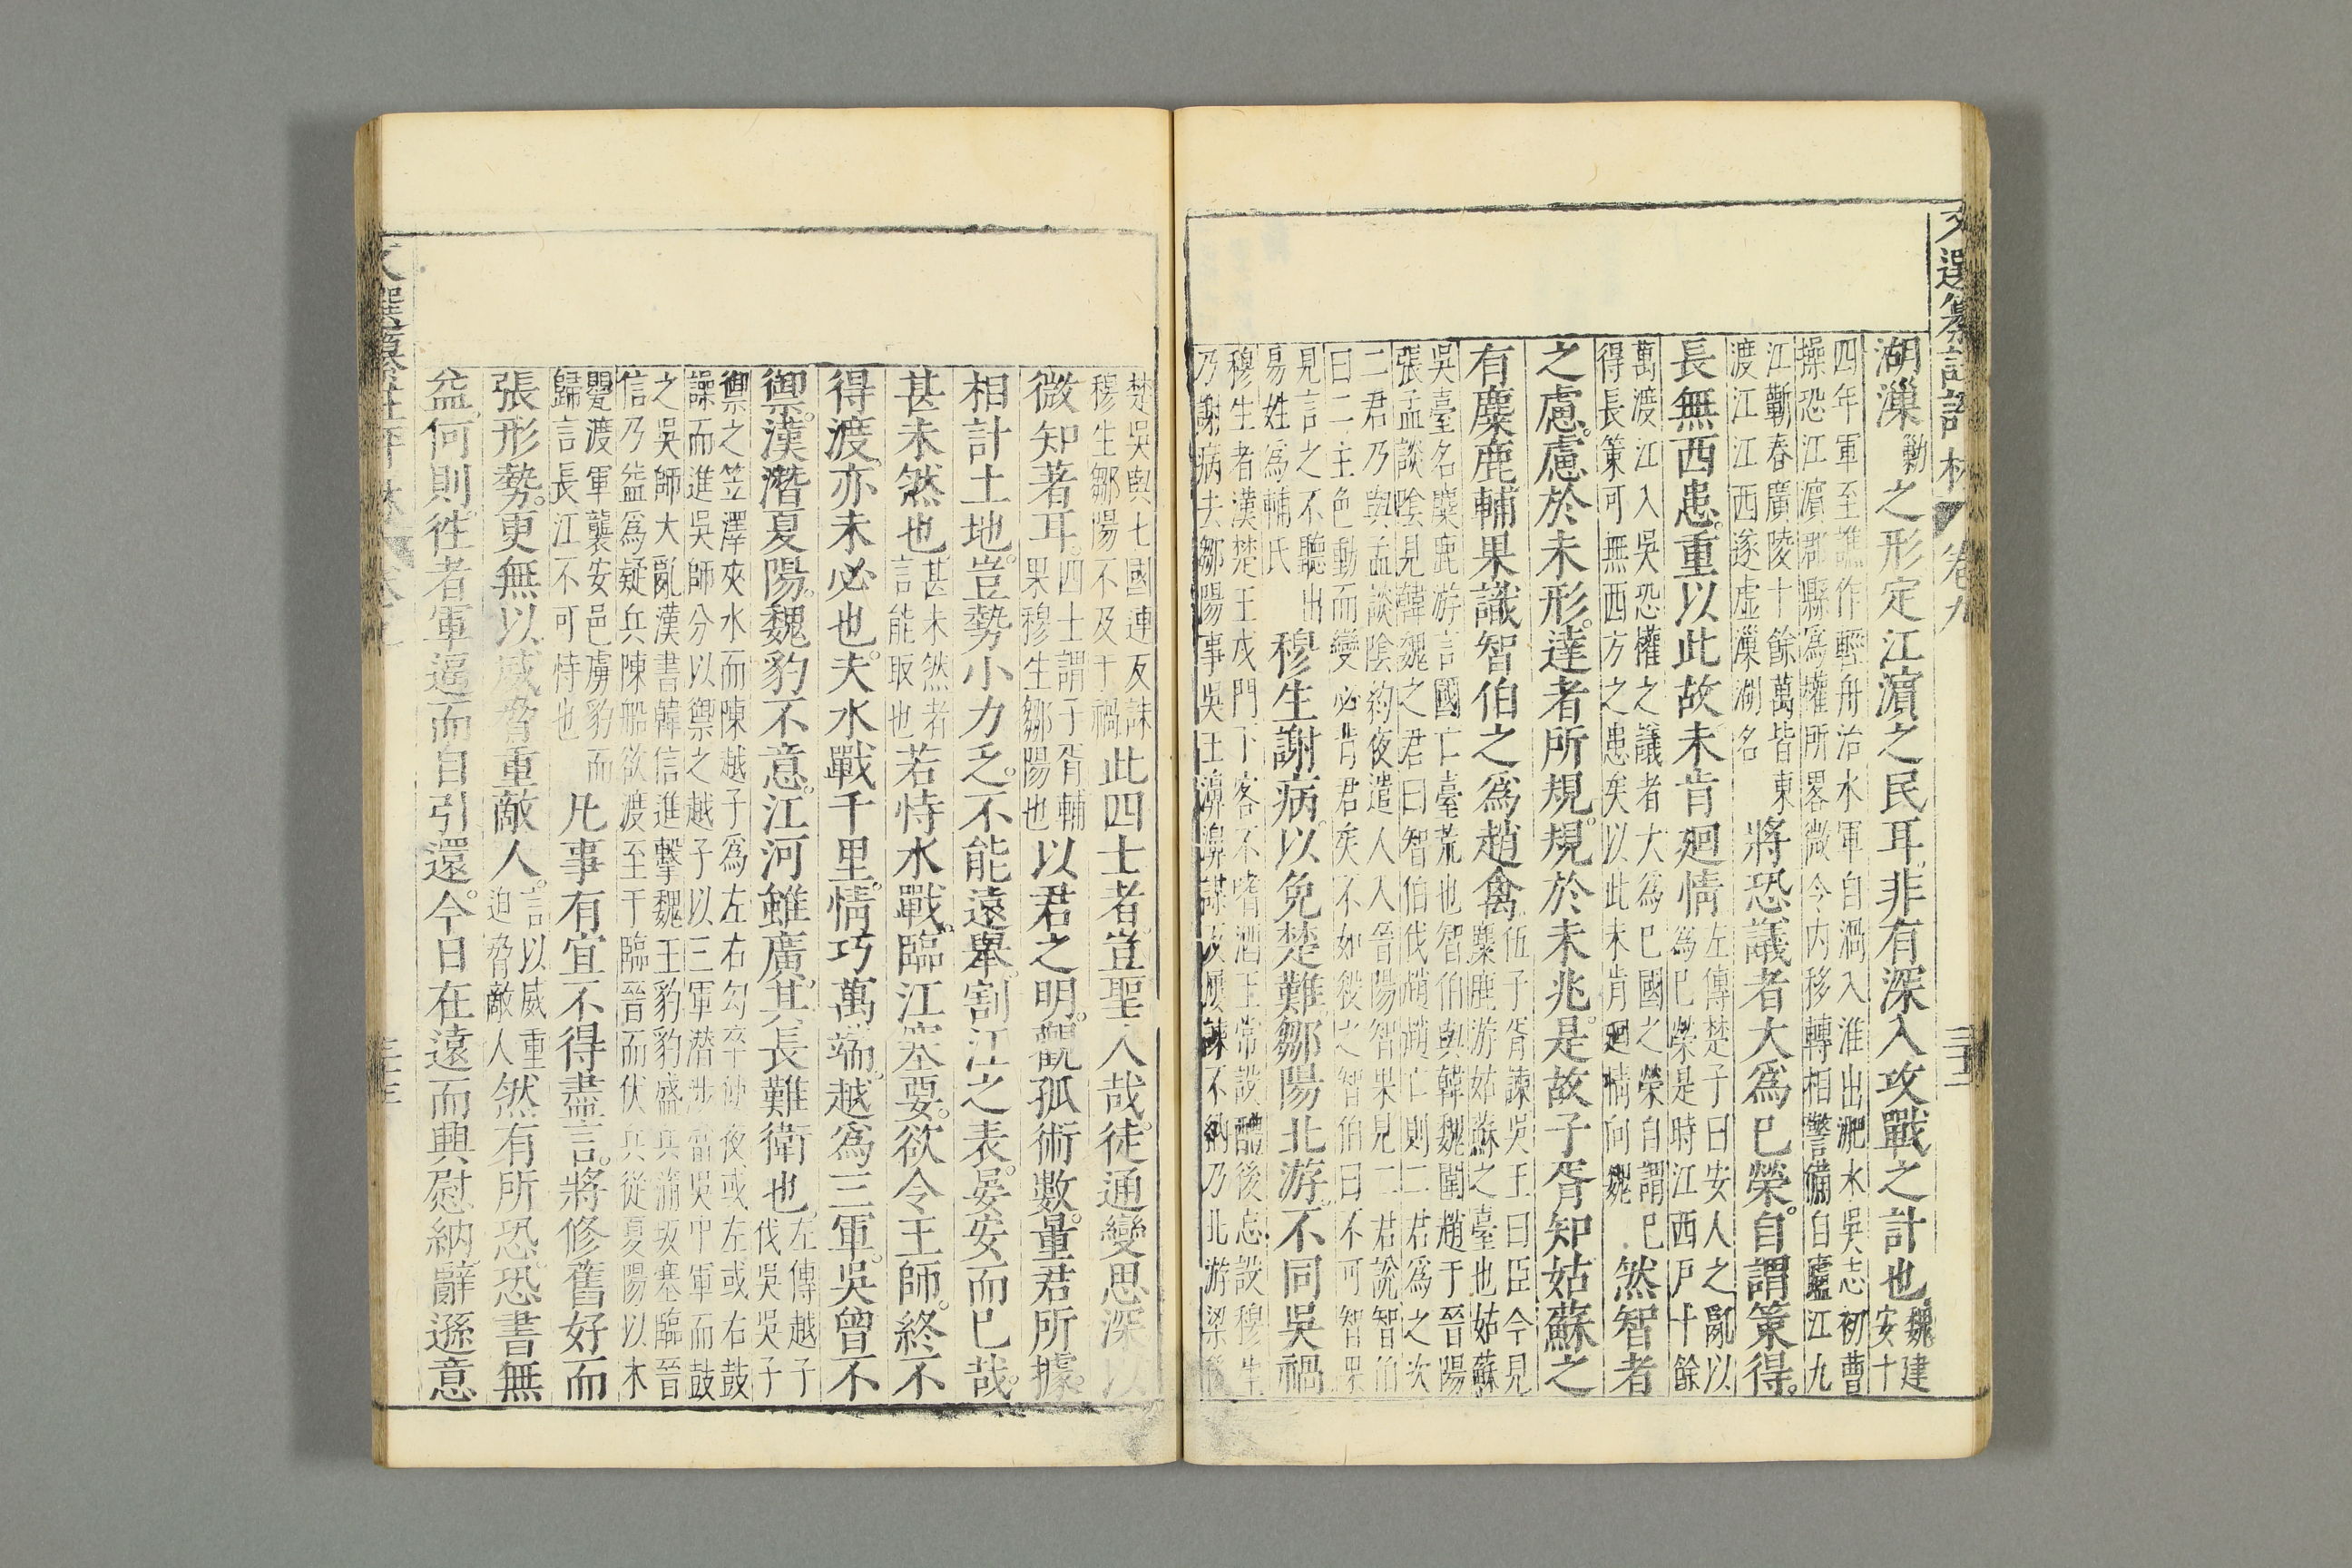 文選纂註評林
卷九
湖漅勦之形定江濵之民耳非有深入攻戰之計也魏建安十
四年軍至譙作輕舟治水軍自渦入淮出淝水吳志初曹
操恐江濵郡縣爲權所畧微令内移轉相警備自廬江九
江蘄春廣陵十餘萬皆東
渡江江西遂虛漅湖名將恐議者大爲已榮自謂策得
長無西患重以此故未肯廻情左傳楚子曰安人之亂以爲已榮是時江西戶十餘
萬渡江入吳恐權之議者大爲已國之榮自謂已
得長策可無西方之患矣以此未肯廻情向魏然智者
之慮慮於未形達者所規規於未兆是故子胥知姑蘇之
有麋鹿輔果識智伯之爲趙禽伍子胥諫吳王曰臣今見麋鹿游姑蘇之臺也姑蘇
吳臺名麋鹿游言國亡臺荒也智伯與韓魏圍趙于晉陽
張孟談陰見韓魏之君曰智伯伐趙趙亡則二君爲之次
二君乃與孟談陰約夜遣人入晉陽智果見二君說智伯
曰二主色動而變必背君矣不如殺之智伯曰不可智果
見言之不聽出
易姓爲輔氏穆生謝病以免楚難鄒陽北游不同吳禍
穆生者漢楚王戊門下客不嗜酒王常設醴後忘設穆生
乃謝病去鄒陽事吳王濞濞謀反屢諫不納乃北游梁後
楚吳與七國連反誅
穆生鄒陽不及于禍此四士者豈聖人哉徒通變思深以
微知著耳四士謂子胥輔果穆生鄒陽也以君之明觀孤術數量君所據
相計土地豈勢小力乏不能遠舉割江之表晏安而已哉
甚未然也甚未然者言能取也若恃水戰臨江塞要欲令王師終不
得渡亦未必也夫水戰千里情巧萬端越爲三軍吳曾不
禦漢潛夏陽魏豹不意江河雖廣其長難衛也左傳越子伐吳吳子
禦之笠澤夾水而陳越子爲左右勾卒使夜或左或右鼓
譟而進吳師分以禦之越子以三軍潜涉當吳中軍而鼓
之吳師大亂漢書韓信進擊魏王豹豹盛兵蒲坂塞臨晉
信乃益爲疑兵陳船欲渡至于臨晉而伏兵從夏陽以木
罌渡軍襲安邑虜豹而
歸言長江不可恃也凡事有宜不得盡言將修舊好而
張形勢更無以威脅重敵人言以威重迫脅敵人然有所恐恐書無
益何則徃者軍逼而自引還今日在遠而興慰納辭遜意
文選纂註評林